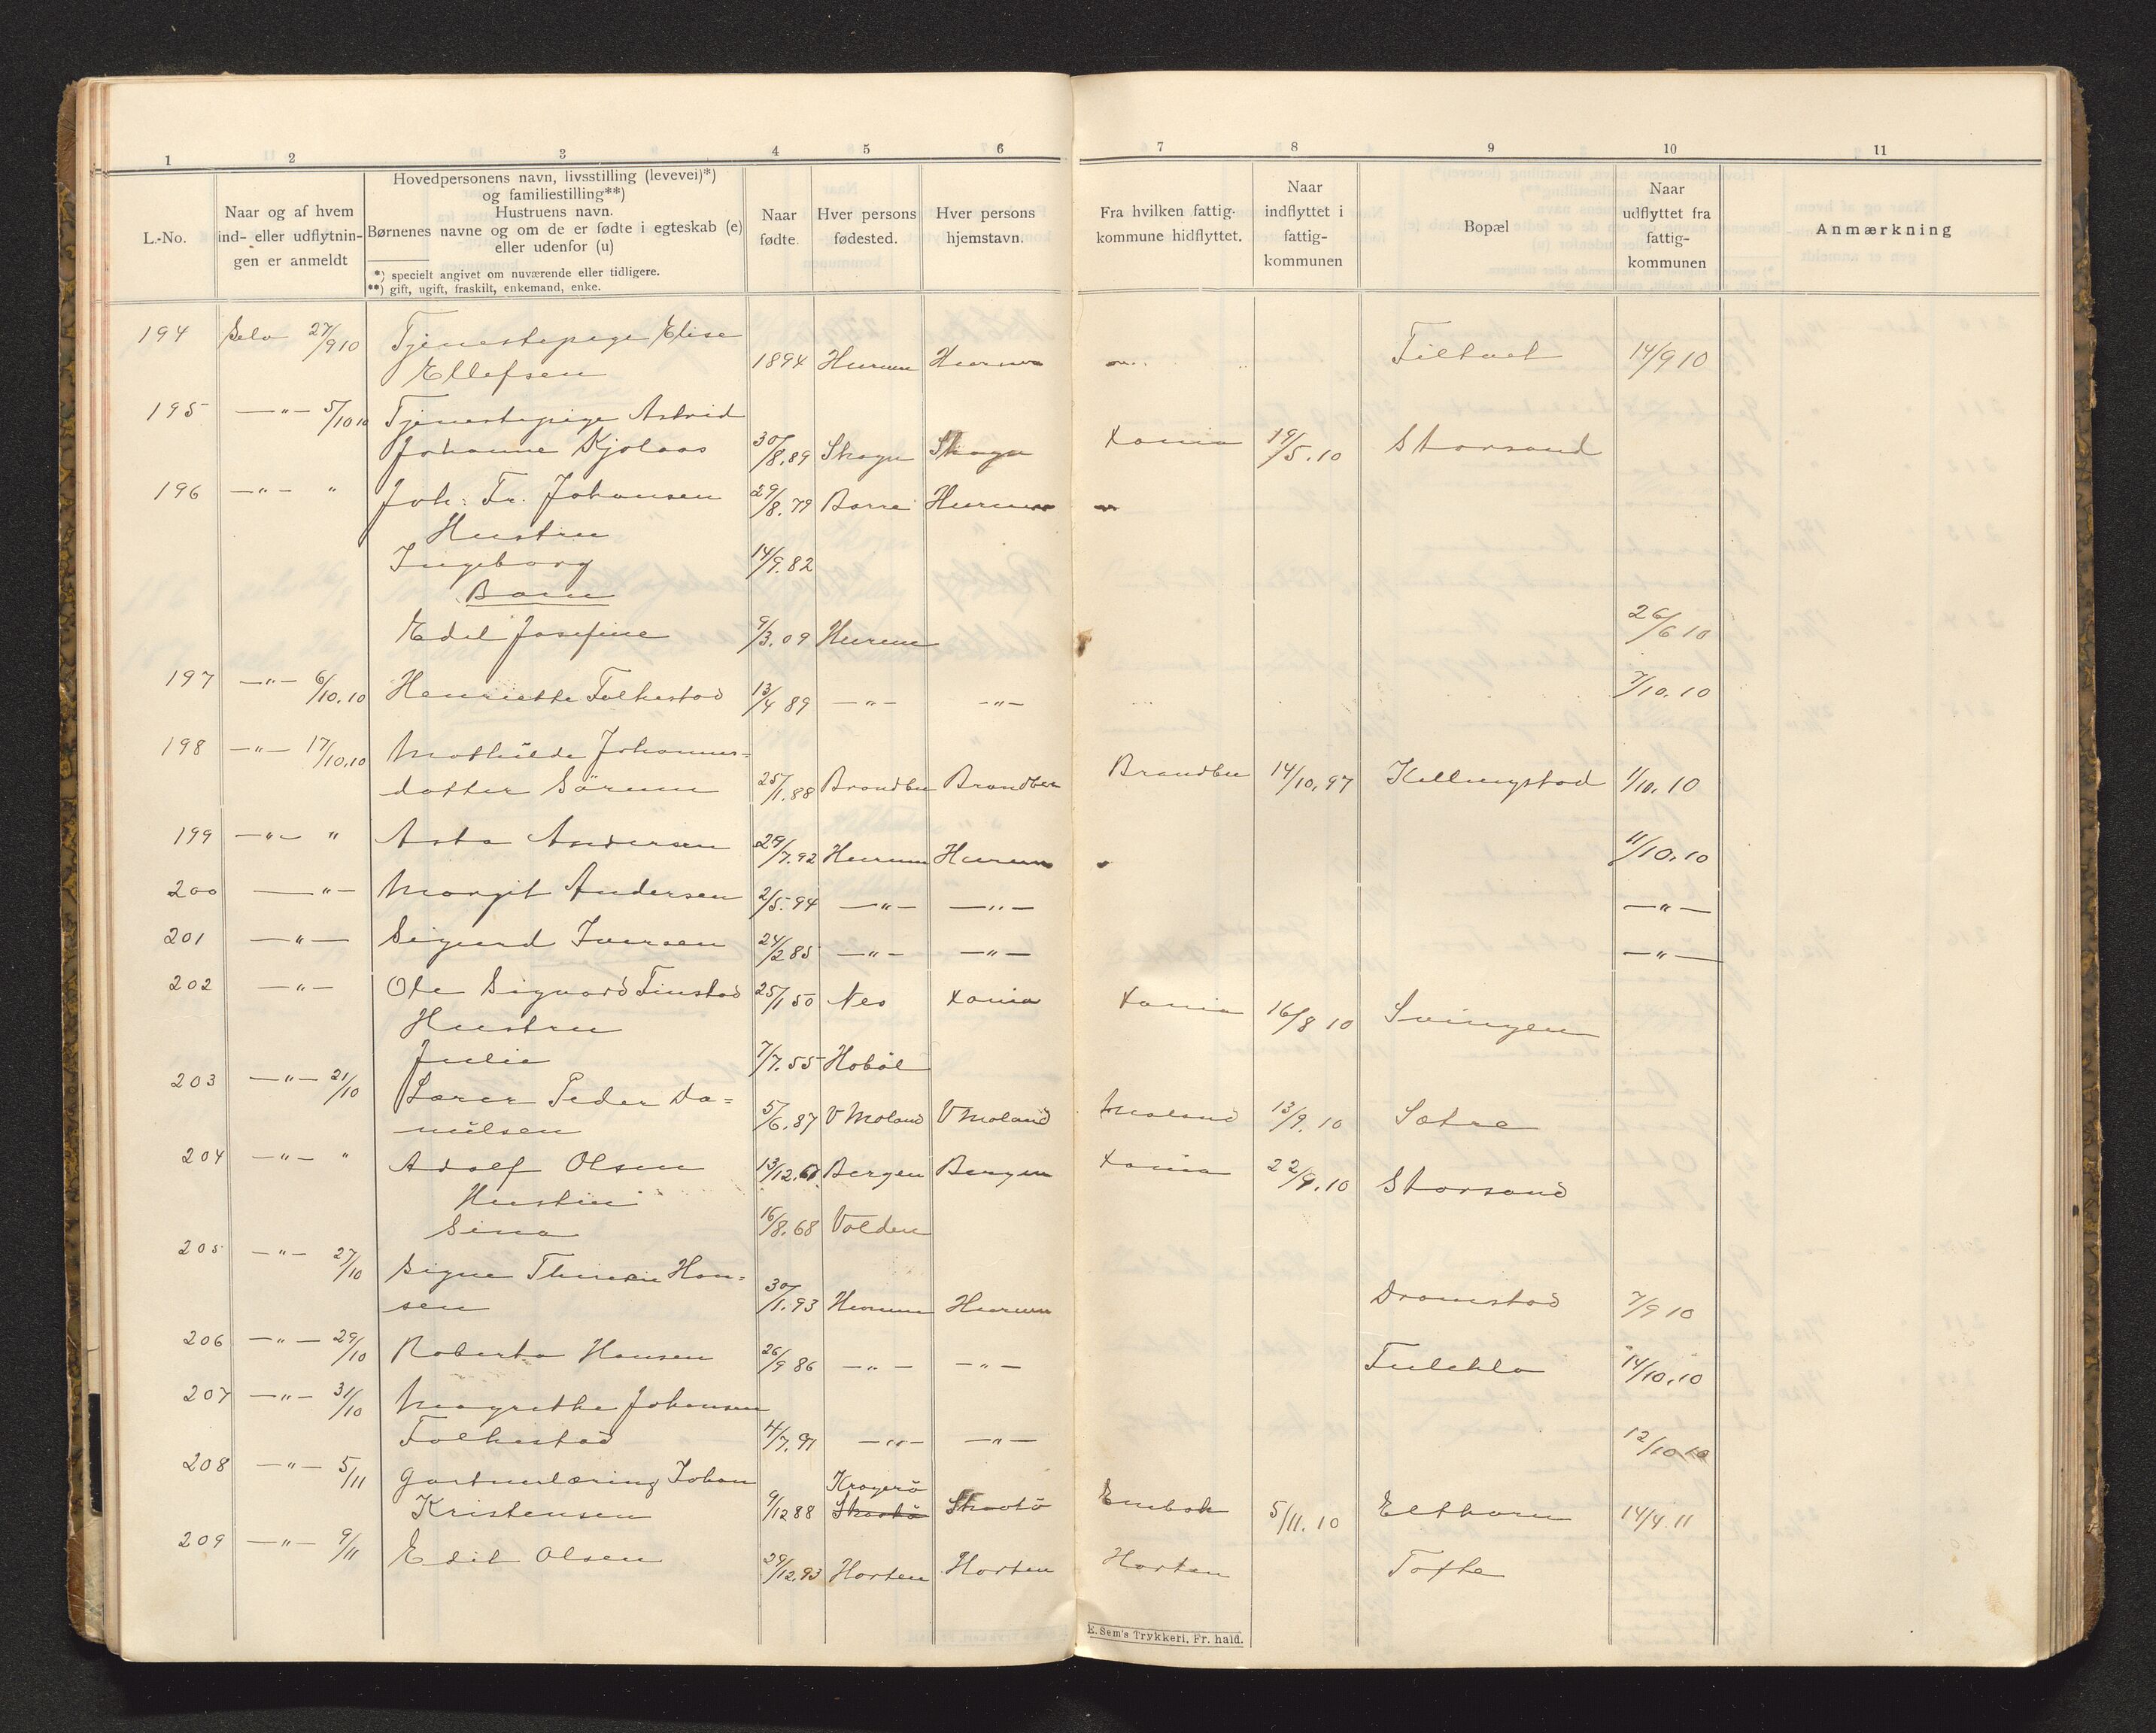 1 2 3 4 5 6 7 8 9 10 11
L.-No.
Naar og af hvem
ind- eller udflytnin-
gen er anmeldt
Hovedpersonens navn, livsstilling (levevei)*)
og familiestilling**)
Hustruens navn.
Børnenes navne og om de er fødte i egteskab (e)
eller udenfor (u)
*) specielt angivet om nuværende eller tidligere.
**) gift, ugift, fraskilt, enkemand, enke.
Naar
fødte.
Hver persons
fødested.
Hver persons
hjemstavn.
Fra hvilken fattig-
kommune hidflyttet.
Naar
indflyttet i
fattig-
kommunen
Bopæl
Naar
udflyttet fra
fattig-
kommunen
Anmærkning
194 Selv 27/9 10 Tjenestepige Elise
Ellefsen 1894 Hurum Hurum 14/9 10
195 —"— 5/10 10 Tjenestepige Astrid
Johanne Kjølaas 30/8.89 Skogn Skogn Xania 19/5.10 Storsand
196 —"— " Joh: Fr. Johansen 29/8.79 Borre Hurum
Hustru
Ingeborg 14/9.82
Barn
Edel Josefine 9/3.09 Hurum 26/6 10
197 —"— 6/10.10 Henriette Folkestad 13/4 89 —"— —"— 7/10.10
198 —"— 17/10.10 Mathilde Johannes=
datter Sørum 25/1.88 Brandbu Brandbu Brandbu 14/10.97 Killingstad 1/10.10
199 —"— " Asta Andersen 29/7.92 Hurum Hurum 11/10.10
200 —"— Margit Andersen 2/5.94 —"— —"— —"—
201 —"— Sigurd Iversen 24/2 85 —"— —"— —"—
202 —"— Ole Sigvard Finstad 25/1 50 Nes Xania Xania 16/8 10 Svingen
Hustru
Julie 7/7.55 Hobøl
203 —"— 21/10 Lærer Peder Da=
nielsen 5/6.87 V Moland V Moland Moland 13/9.10 Sætre
204 —"— " Adolf Olsen 13/12.61 Bergen Bergen Xania 22/9.10 Storsand
Hustru
Sina 16/8.68 Volden
205 —"— 27/10 Signe Han=
sen 30/1.93 Hurum Hurum Dramstad 7/9 10
206 —"— 29/10 Roberta Hansen 26/9 86 —"— —"— 14/10.10
207 —"— 31/10 Magrethe Johansen
Folkestad 4/7.91 —"— —"— 12/10 10
208 —"— 5/11 Gartnerlæring Johan Kragerö
Kristensen 9/12 88 Skaatö Skaatö 5/11.10 Elthorn 14/4 11
209 —"— 9/11 Edit Olsen 29/12.93 Horten Horten Horten Tofte
E. Sem's Trykkeri, Fr. hald.